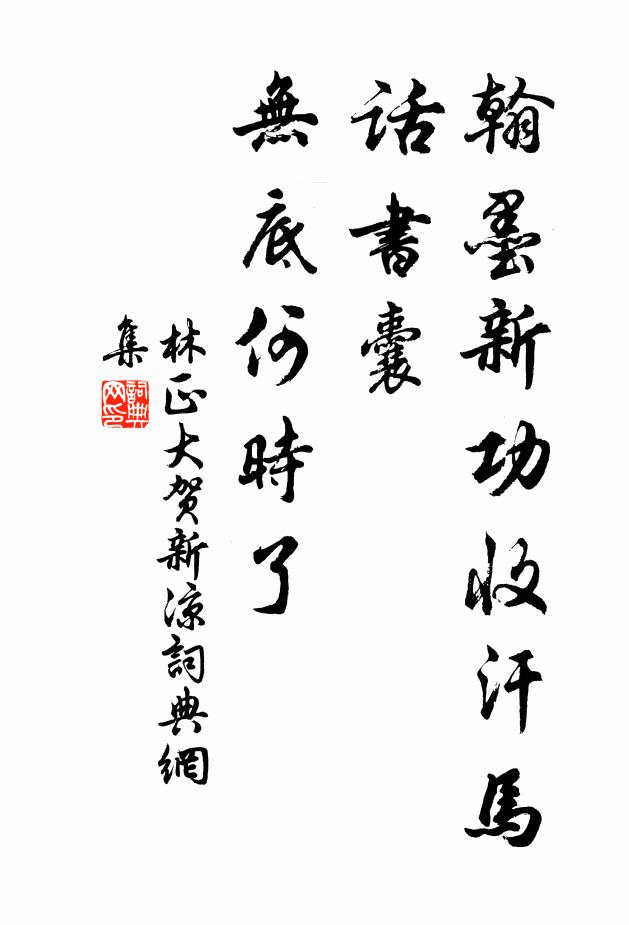 翰墨新功收汗馬
話書囊
無底何時了
林正大賀新涼詞典網
集
詞典网印